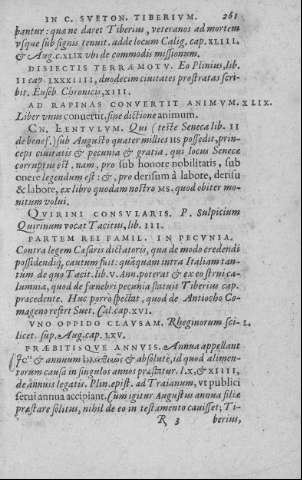 IN C. SVETON. TIBERIVM. 261
bantur: qua ne daret Tiberius, veteranos ad mortem
vsque sub signis tenuit. adde locum Calig. cap. XLIII.
& Aug. c. XLIX vbi de commodis missionum.
DISIECTIS TERRAEMOTV. Ex Plinius, lib.
II cap. LXXXIIII, duodecim ciuitates prostratas scri-
bit. Euseb. Chronicis, XIII.
AD RAPINAS CONVERTIT ANIMVM. XLIX.
Liber vnus conuertit, sine dictione animum.
CN. LENTVLVM. Qui (teste Seneca lib. II
de benef.) sub Augusto quater milies HS possedit, prin-
ceps ciuitatis & pecunia & gratia. qui locus Senecæ
corruptus est. nam, pro sub honore nobilitatis, sub
onere legendum est: &, pro derisum à labore, derisu
& labore, ex libro quodam nostro MS. quod obiter mo-
nitum volui.
QVIRINI CONSVLARIS. P. Sulpicium
Quirinum vocat Tacitus, lib. III.
PARTEM REI FAMIL. IN PECVNIA.
Contra legem Cæsaris dictatoris, qua de modo credendi
possidendiq́, cautum fuit: quāquam intra Italiam tan-
tum de quo Tacit. lib. V. Ann. poterat & ex eo strui ca-
lumnia, quod de fœnebri pecunia statuit Tiberius cap.
præcedente. Huc porrò spectat, quod de Antiocho Co-
mageno refert Suet. Cal. cap. XVI.
VNO OPPIDO CLAVSAM. Rheginorum sci- L.
licet. sup. Aug. cap. LXV.
PRAEBITISQVE ANNVIS. Annua appellant
& annuum & absolutè, id quod alimen-
torum causa in singulos annos præstatur. l. X, & XIIII,
de annuis legatis. Plin. epist. ad Traianum, vt publici
serui annua accipiant. Cùm igitur Augustus annua filiæ
præstare solitus, nihil de eo in testamento cauisset; Ti-
R 3 berius,